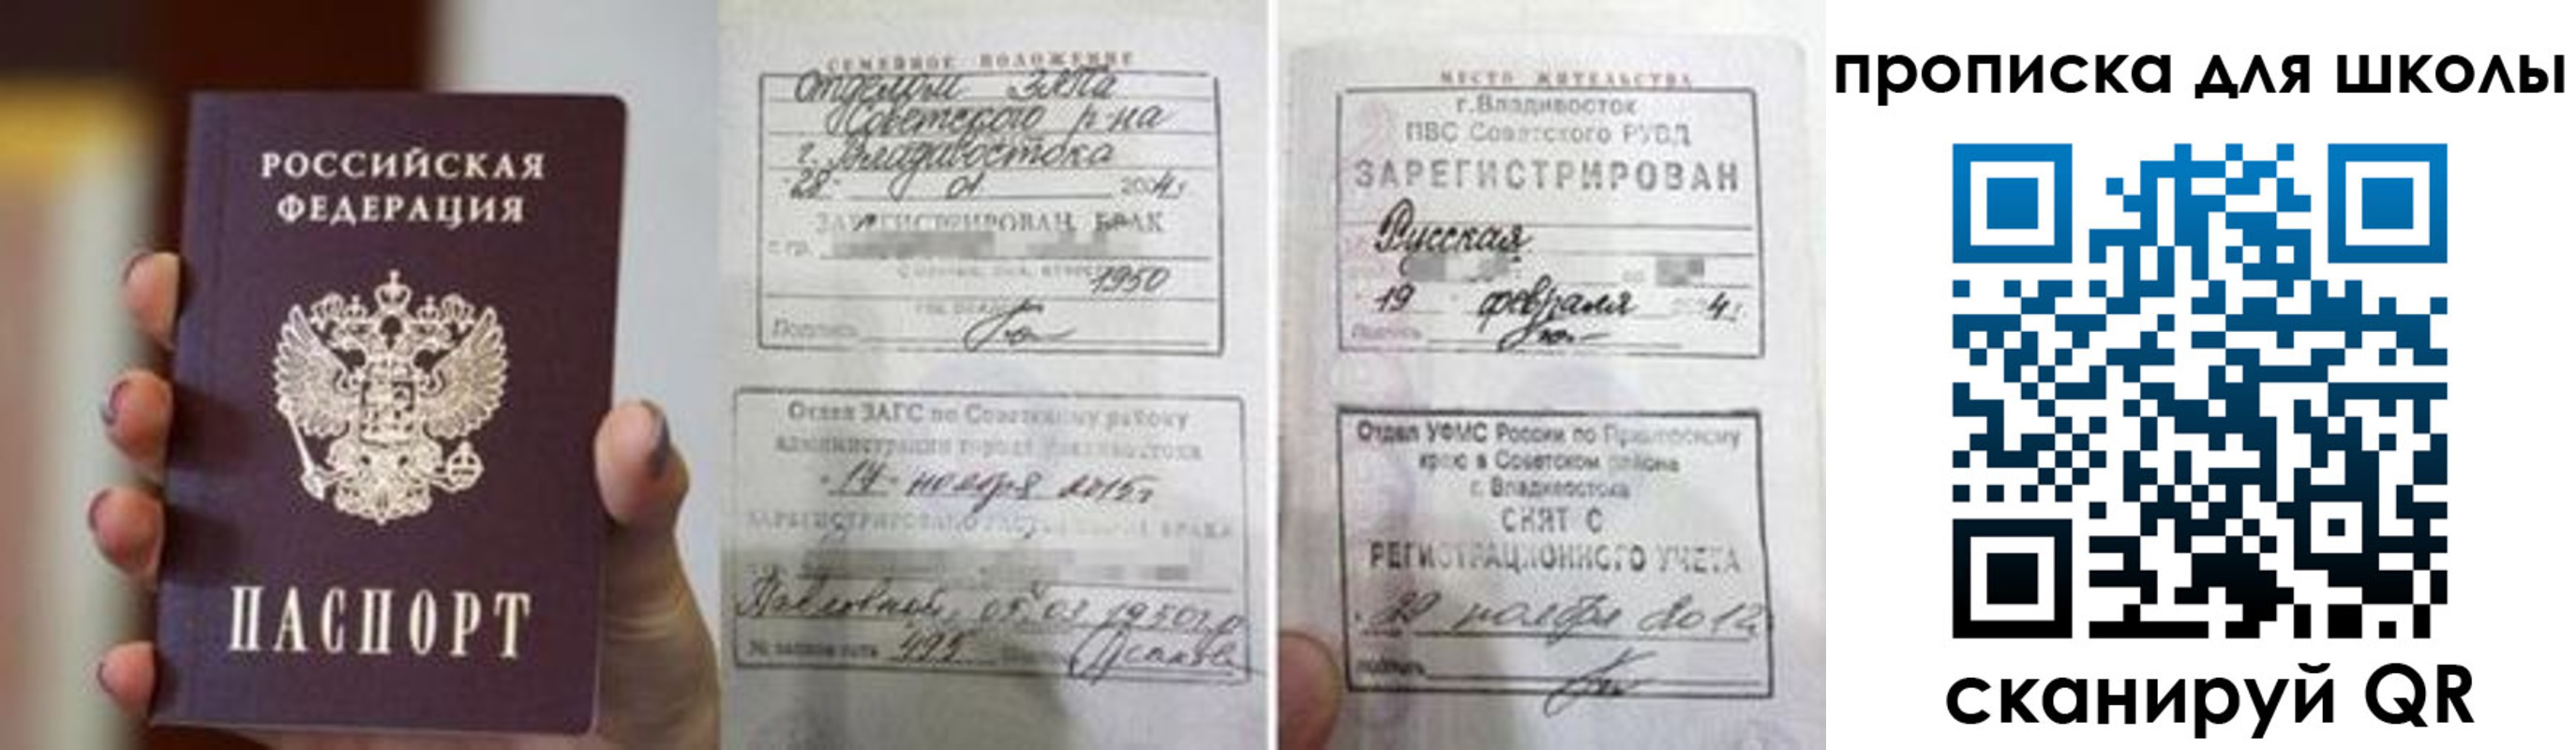 РОССИЙСКАЯ
ФЕДЕРАЦИЯ
ПАСПОРТ
СЕМЕЙНОЕ ПОЛОЖЕНИЕ
Отделом ЗАГСа
Советского р-на
г. Владивостока
"28" 01 2004 г.
ЗАРЕГИСТРИРОВАН БРАК
с гр.
1950
Подпись
Отдел ЗАГС по Советскому району
администрации города Владивостока
"17" ноября 2015г
Павловной, 05.03 1950г.р
№ записи акта 495
МЕСТО ЖИТЕЛЬСТВА
г.Владивосток
ПВС Советского РУВД
ЗАРЕГИСТРИРОВАН
Русская
19 февраля 4г
Подпись
Отдел УФМС России по Приморскому
краю в Советском районе
г. Владивостока
СНЯТ С
РЕГИСТРАЦИОННОГО УЧЕТА
ноября 2012
подпись
прописка для школы
сканируй QR